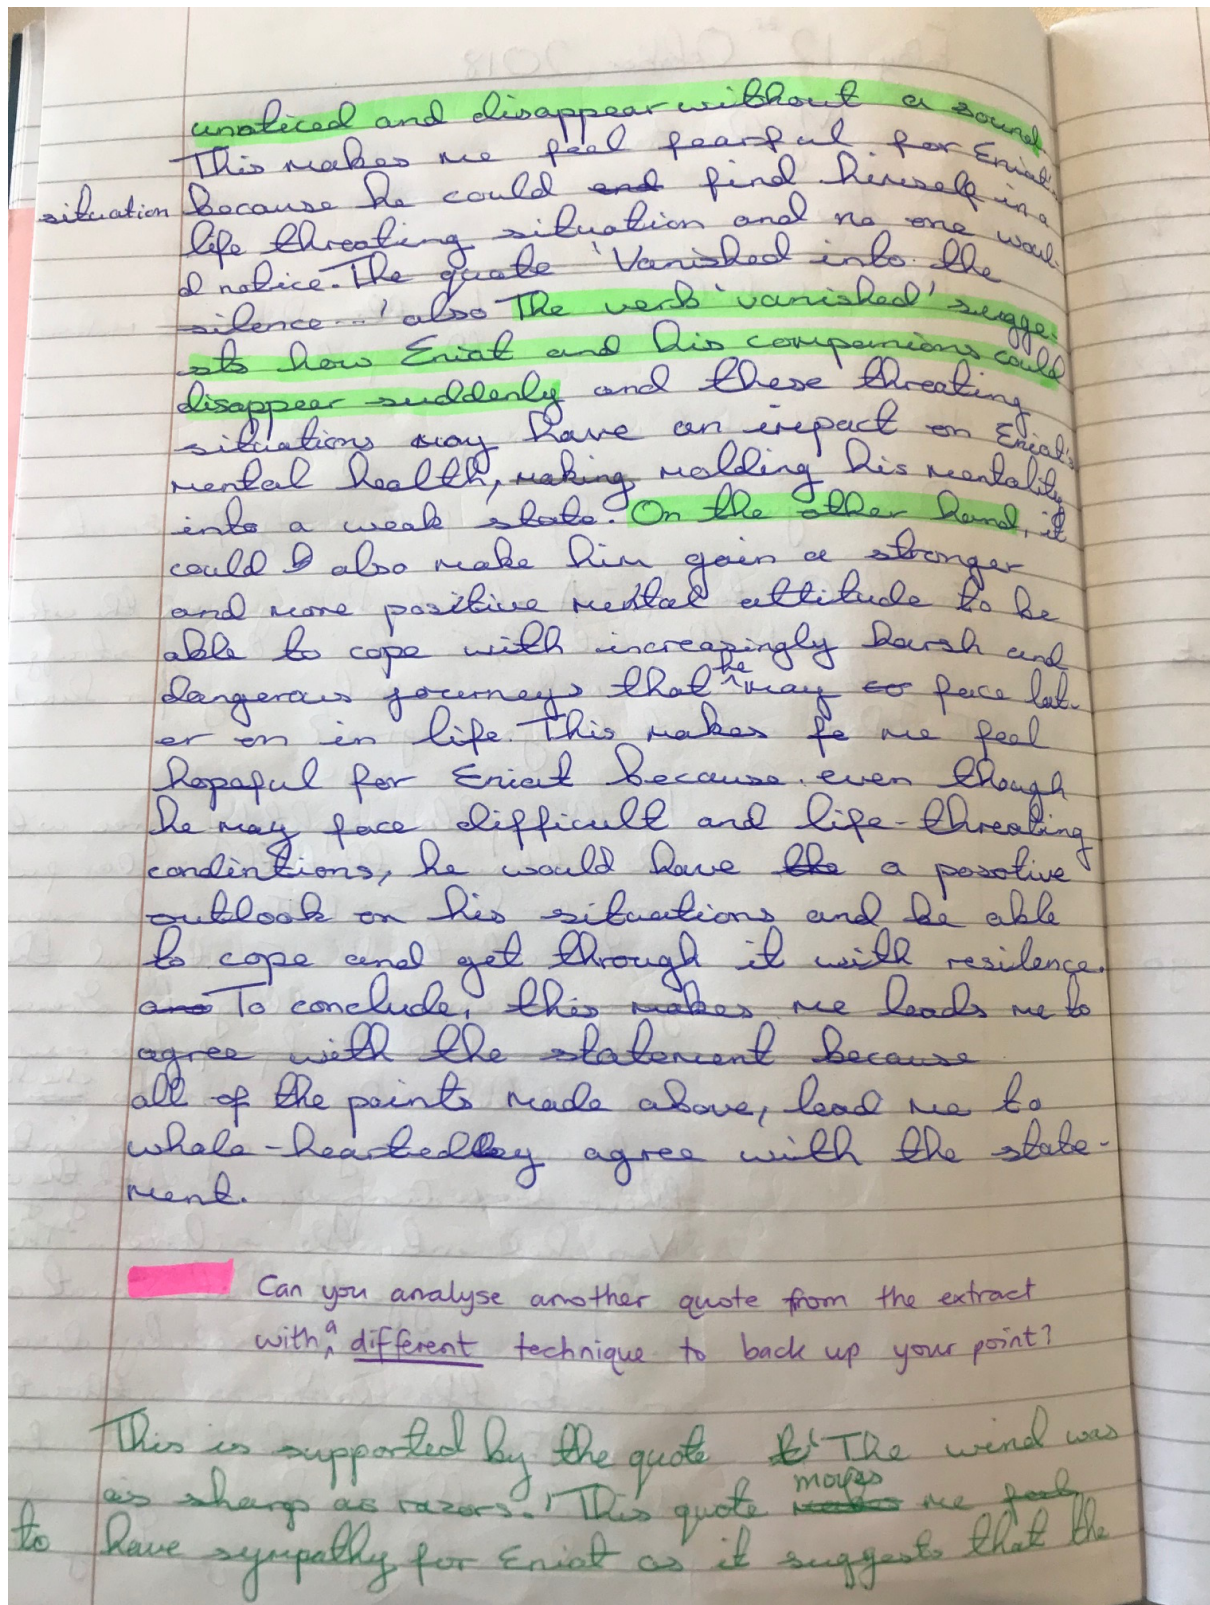 unoticed and disappear without a sound.
This makes me feel fearful for Eniat
situation because he could and find himself in a
life threating situation and no one woul-
d notice. The quote 'Vanished into the
silence...' also The verb 'vanished' sugge-
sts how Eniat and his companions could
disappear suddenly and these threating
situations may have an impact on Eniat's
mental health, making molding his mentality
into a weak state. On the other hand, it
could also make him gain a stronger
and more positive mental attitude to be
able to cope with increasingly harsh and
dangerous journeys that he may face lat-
er on in life. This makes fe me feel
hopeful for Eniat because even though
he may face difficult and life-threating
condintions, he would have the a posotive
outlook on his situations and be able
to cope and get through it with resilence.
and To conclude, this makes me leads me to
agree with the statement because
all of the points made above, lead me to
whole-heartedley agree with the state-
ment.
Can you analyse another quote from the extract
with a different technique to back up your point?
This is supported by the quote 'The wind was
as sharp as razors.' This quote makes moves me feel
to have sympathy for Eniat as it suggests that the